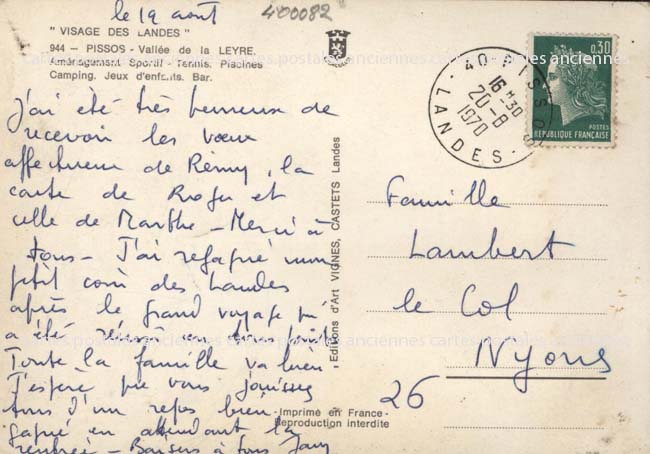 le 19 août
400082
" VISAGE DES LANDES "
944 - PISSOS - Vallée de la LEYRE.
Aménagement Sportif - Tennis. Piscines
Camping. Jeux d'enfants. Bar.
J'ai été très heureuse de
recevoir les vœux
affectueux de Rémy, la
carte de Roger et
celle de Marthe - Merci à
tous - J'ai regagné mon
petit coin des Landes
après le grand voyage qui
a été réussi en tous points
Toute la famille va bien
J'espère que vous jouissez
tous d'un repos bien
gagné en attendant la
rentrée - Baisers à tous
Editions d'Art VIGNES, CASTETS Landes
-Imprimé en France-
Reproduction interdite
40 PISSOS
16 H 30
20-8
1970
LANDES
0,30
POSTES
REPUBLIQUE FRANÇAISE
Famille
Lambert
le Col
Nyons
26
cartes postales anciennes cartes postales anciennes cartes postales anciennes
cartes postales anciennes cartes postales anciennes cartes postales anciennes